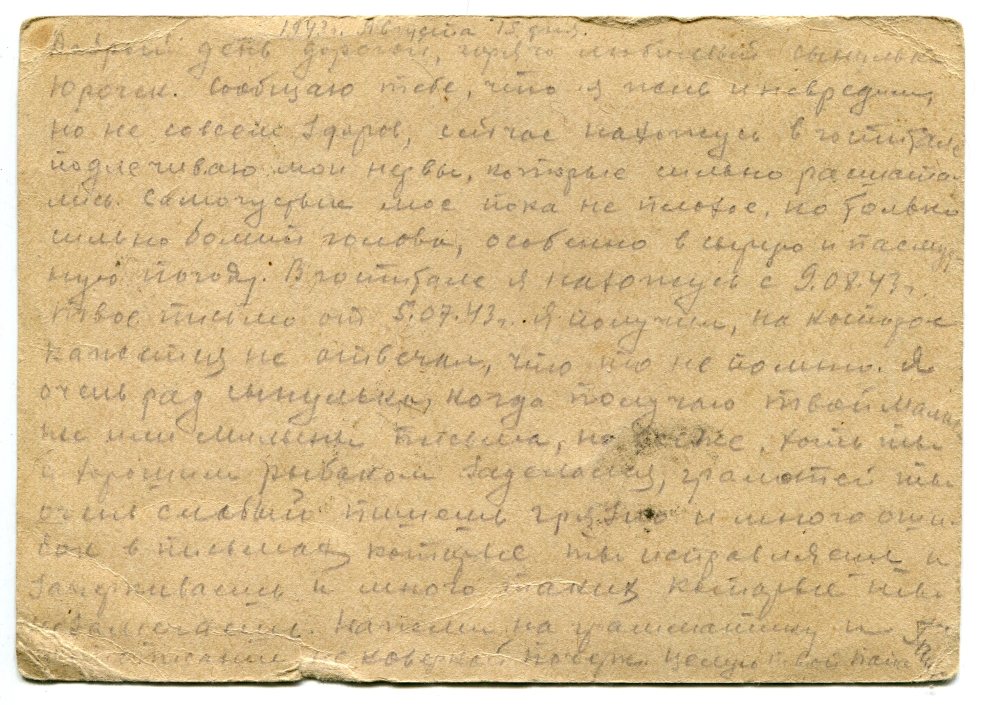 1943 г. Августа 15 дня.
Добрый день дорогой, горячо любимый сынулька
Юрочек. Сообщаю тебе, что я жив и невредим,
но не совсем здоров, сейчас нахожусь в госпитале
подлечиваю мои нервы, которые сильно расшата-
лись. Самочуствие мое пока не плохое, но только
сильно болит голова, особенно в сырую и пасмур-
ную погоду. В госпитале я нахожусь с 9.08.43 г.
Твое письмо от 5.07.43 г. я получил, на которое
кажется не отвечал, что то не помню. Я
очень рад сынулька, когда получаю твои
или письма, но хоть ты
и хорошим рыбаком заделался, грамотей ты
очень слабый пишешь грязно и много оши-
бок в письмах которые ты исправляешь и
и много таких которые ты
Напиши на грамматику и
не коверкай почерк. Целую твой папа